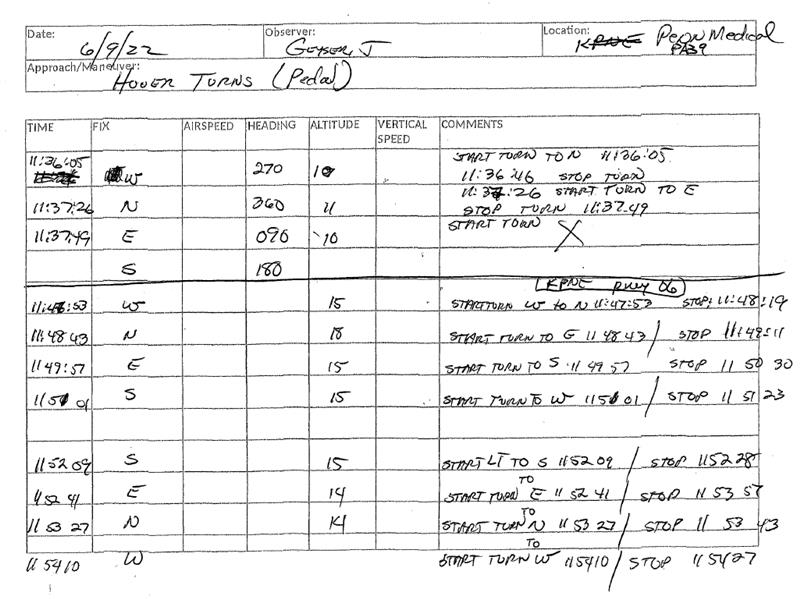 Date: 6/9/22 Observer: GEYSER, J Location: KPNE Penn Medical
PA39
Approach/Maneuver: HOVER TURNS (Pedal)
TIME FIX AIRSPEED HEADING ALTITUDE VERTICAL SPEED COMMENTS
11:36:05 W 270 10 START TURN TO N 11:36:05
11:36:46 STOP TURN
11:37:26 N 360 11 11:37:26 START TURN TO E
STOP TURN 11:37:49
11:37:49 E 090 10 START TURN X
S 180
KPNE RWY 06
11:48:53 W 15 START TURN W to N 11:47:53 STOP: 11:48:19
11:48 43 N 18 START TURN TO E 11 48 43 / STOP 11:49:11
11 49:57 E 15 START TURN TO S 11 49 57 STOP 11 50 30
1151 01 S 15 START TURN TO W 1151 01 / STOP 11 51 23
1152 09 S 15 START LT TO S 1152 09 / STOP 1152 28
11 52 41 E 14 START TURN TO E 11 52 41 / STOP 11 53 57
11 53 27 N 14 START TURN TO N 11 53 27 / STOP 11 53 43
11 5410 W START TURN TO W 115410 / STOP 11 5427